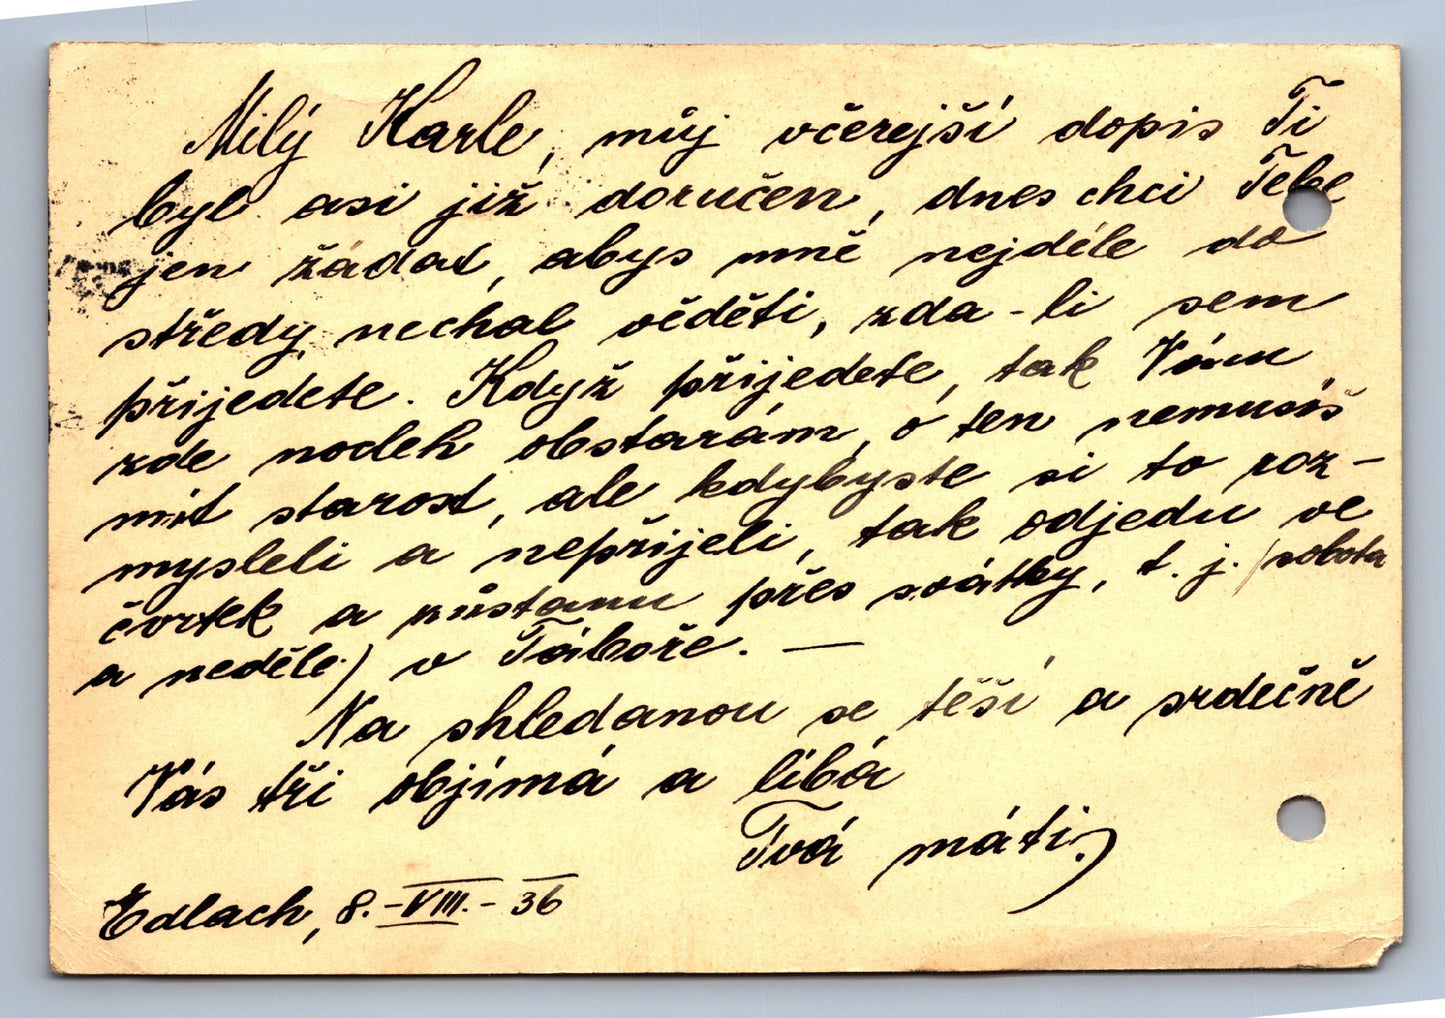 Milý Karle, můj včerejší dopis Ti
byl asi již doručen, dnes chci Tebe
jen žádat, abys mně nejdéle do
středy nechal věděti, zda-li sem
přijedete. Když přijedete, tak Vám
zde nocleh obstarám, o ten nemusíš
mít starost, ale kdybyste si to roz-
mysleli a nepřijeli, tak odjedu ve
čvrtek a zůstanu přes svátky, t. j. (sobota
a neděle) v Táboře. —
Na shledanou se těší a srdečně
Vás tři objímá a líbá
Tvá máti.
Edlach, 8.-VIII.-36